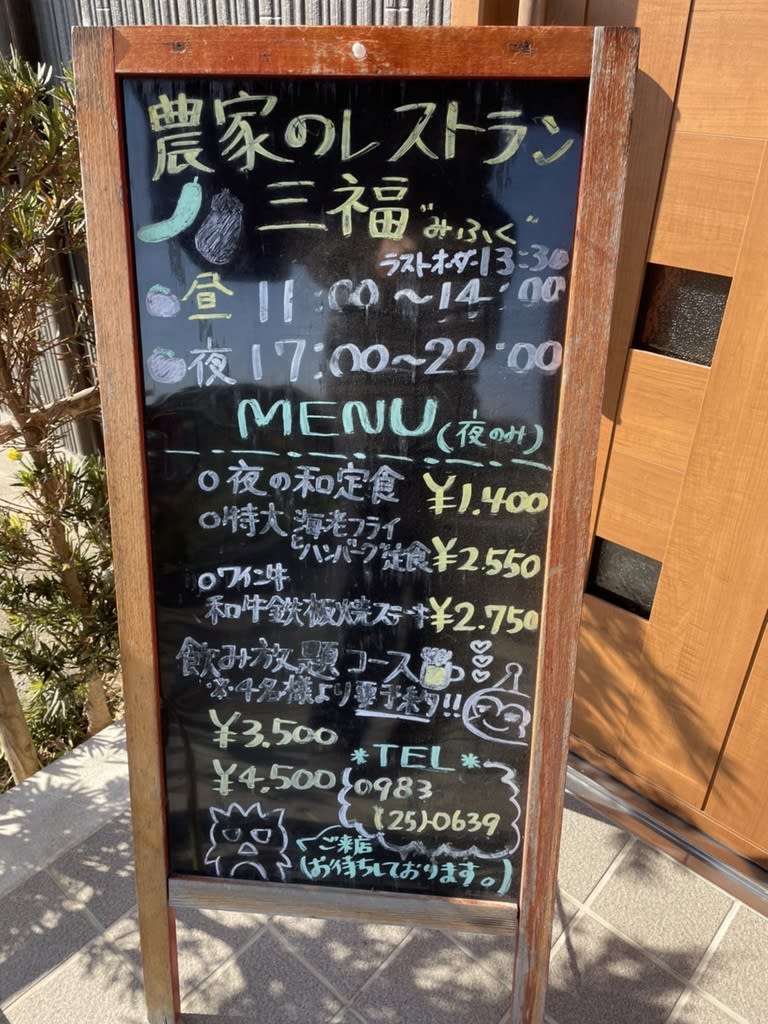 農家のレストラン
三福 "みふく"
ラストオーダー13:30
昼 11:00〜14:00
夜 17:00〜22:00
MENU (夜のみ)
○夜の和定食 ¥1.400
○特大 海老フライ
とハンバーグ定食 ¥2.550
○ワイン牛
和牛鉄板焼ステーキ ¥2.750
飲み放題コース
※4名様より要予約!!
¥3.500
¥4.500
*TEL*
0983
(25)-0639
ご来店
お待ちしております。